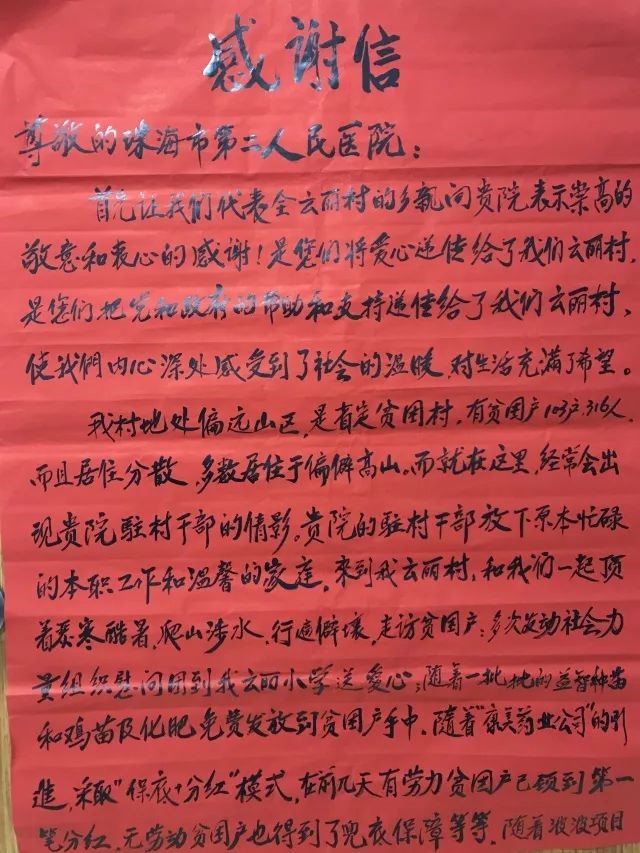 感谢信
尊敬的珠海市第二人民医院：
首先让我们代表全云丽村的乡亲问贵院表示崇高的
敬意和衷心的感谢！是您们将爱心递传给了我们云丽村，
是您们把党和政府的帮助和支持递传给了我们云丽村、
使我們内心深处感受到了社会的温暖，对生活充满了希望。
我村地处偏远山区，是省定贫困村，有贫困户103户，316人，
而且居住分散，多数居住于偏僻高山。而就在这里，经常会出
现贵院驻村干部的倩影。贵院的驻村干部放下原本忙碌
的本职工作和温馨的家庭，来到我云丽村，和我们一起顶
着严寒酷暑，爬山涉水，行遍僻壤，走访贫困户；多次发动社会力
量组织慰问团到我云丽小学送爱心；随着一批批的益智种苗
和鸡苗及化肥免费发放到贫困户手中，随着"康美药业公司"的引
進，采取"保底+分红"模式，在前几天有劳力贫困户已领到第一
笔分红，无劳动贫困户也得到了兜底保障等等，随着项目